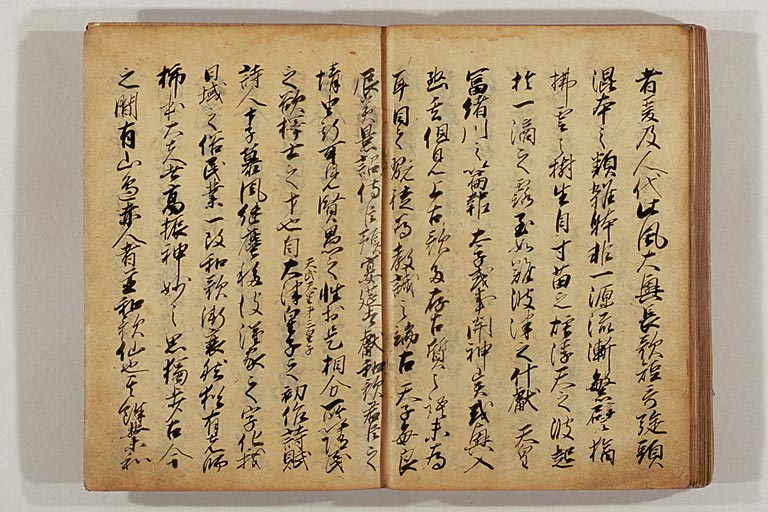 者爰及人代此風大興長歌短哥旋頭
混本之類雜体非一源流漸繁譬猶
拂雲之樹生自寸苗之煙浮天之波起
於一滴之露至如難波津之什獻 天皇
冨緒川之篇報 太子或事関神異或興入
幽玄但見上古歌多存古質之語未為
耳目之翫徒為教誡之端古 天子毎良
辰美景詔侍臣預宴莚者獻和歌君臣之
情由斯可見賢愚之性於是相分所以随民
之欲擇士之才也自大津皇子之初作詩賦
天武天皇第三皇子
詩人才子慕風継塵移彼漢家之字化我
日域之俗民業一改和歌漸衰然猶有先師
柿本大夫者高振神妙之思獨歩古今
之間有山邊赤人者並和歌仙也其餘業和